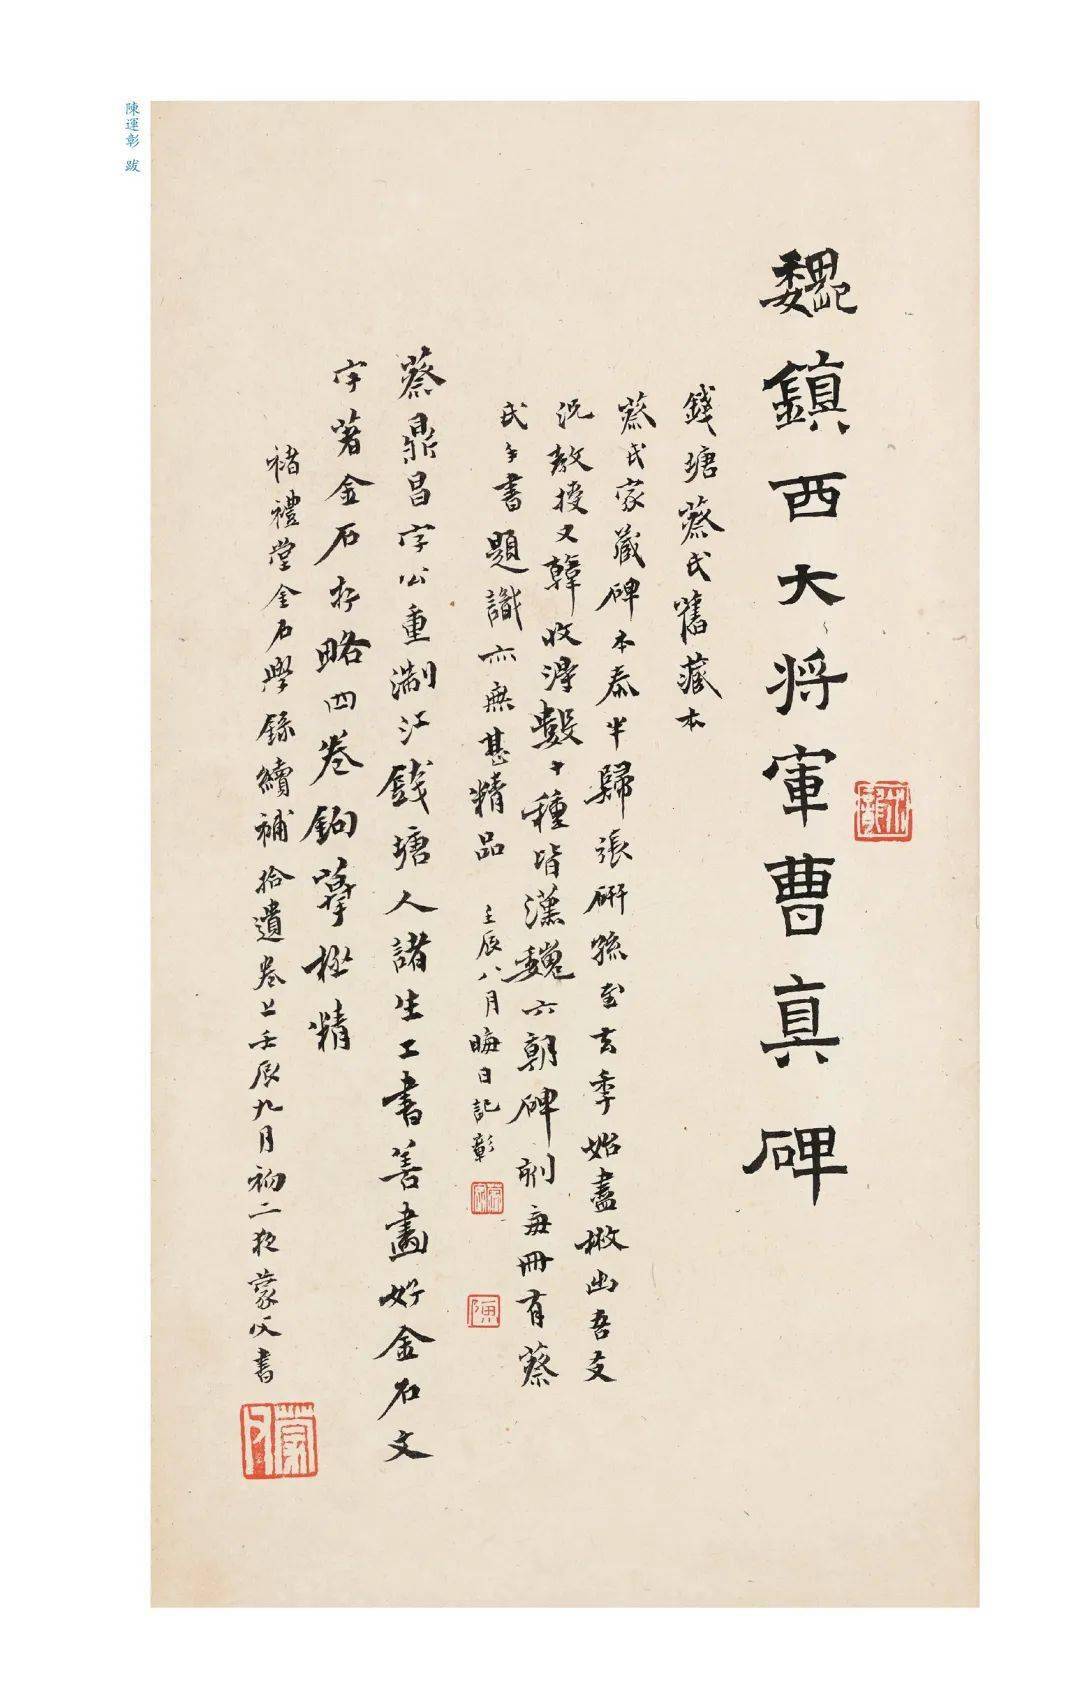 陳運彰 跋
魏鎮西大將軍曹真碑
錢塘蔡氏舊藏本
蔡氏家藏碑本泰半歸張研孫至去季始盡散出吾友
況教授又韓收得數十種皆漢魏六朝碑刻每冊有蔡
氏手書題識亦無甚精品 壬辰八月晦日記彰
蔡鼎昌字公重浙江錢塘人諸生工書善畫好金石文
字著金石存略四卷鉤摹極精
褚禮堂金石學錄續補拾遺卷上壬辰九月初二夜蒙父書
蒙父